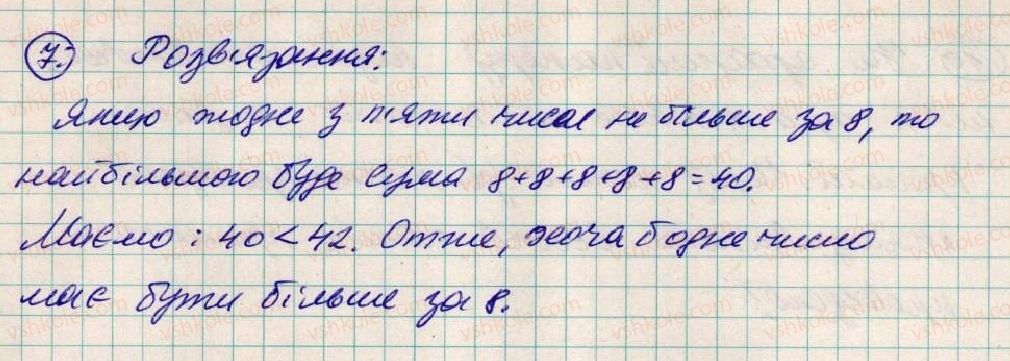 7. Розв'язання:
Якщо жодне з п'яти чисел не більше за 8, то
найбільшою буде сума 8+8+8+8+8=40.
Маємо: 40<42. Отже, хоча б одне число
має бути більше за 8.